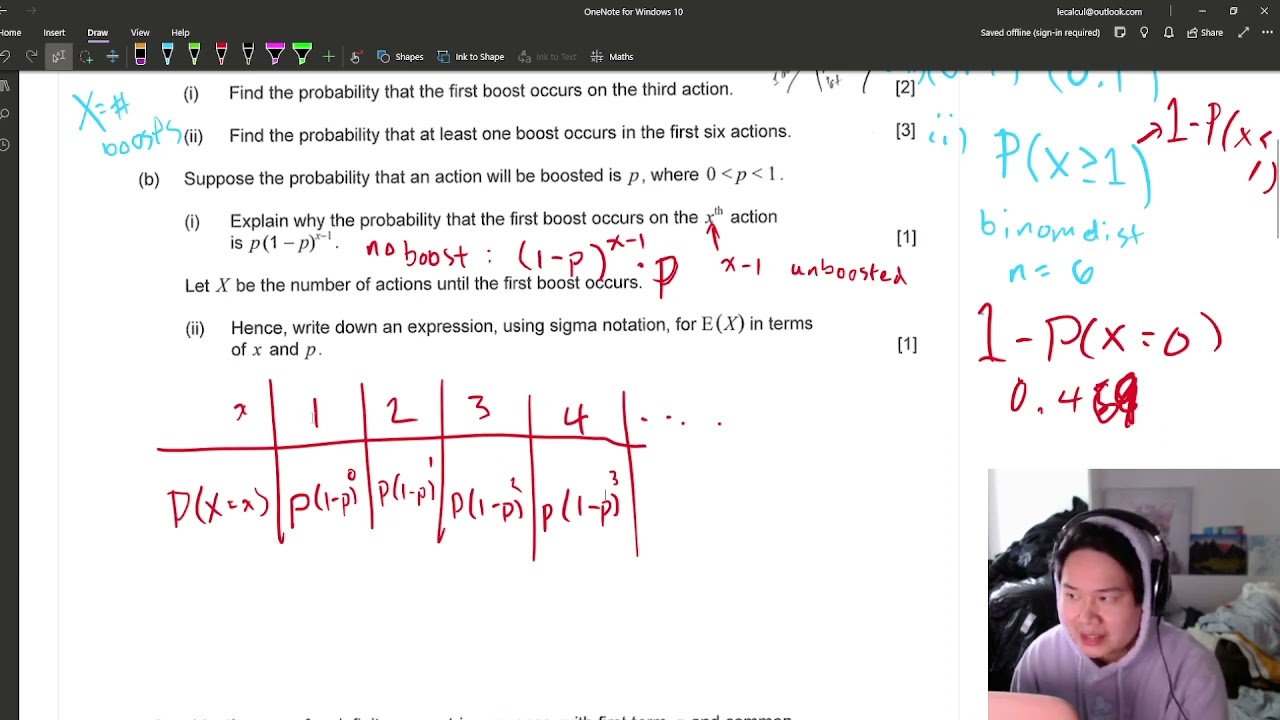 OneNote for Windows 10
lealcul@outlook.com
Home Insert Draw View Help
Saved offline (sign-in required)
Shapes Ink to Shape Ink to Text Maths Share
X = #
boosts
(i) Find the probability that the first boost occurs on the third action. [2]
(ii) Find the probability that at least one boost occurs in the first six actions. [3]
(b) Suppose the probability that an action will be boosted is p, where 0 < p < 1.
(i) Explain why the probability that the first boost occurs on the xth action
is p(1 − p)^{x−1}. [1]
no boost : (1-p)^{x-1} · p
x-1 unboosted
Let X be the number of actions until the first boost occurs.
(ii) Hence, write down an expression, using sigma notation, for E(X) in terms
of x and p. [1]
x 1 2 3 4 ....
P(X=x) p(1-p)^0 p(1-p)^1 p(1-p)^2 p(1-p)^3
ii) P(x≥1) → 1-P(x<
1)
binomdist
n = 6
1-P(x=0)